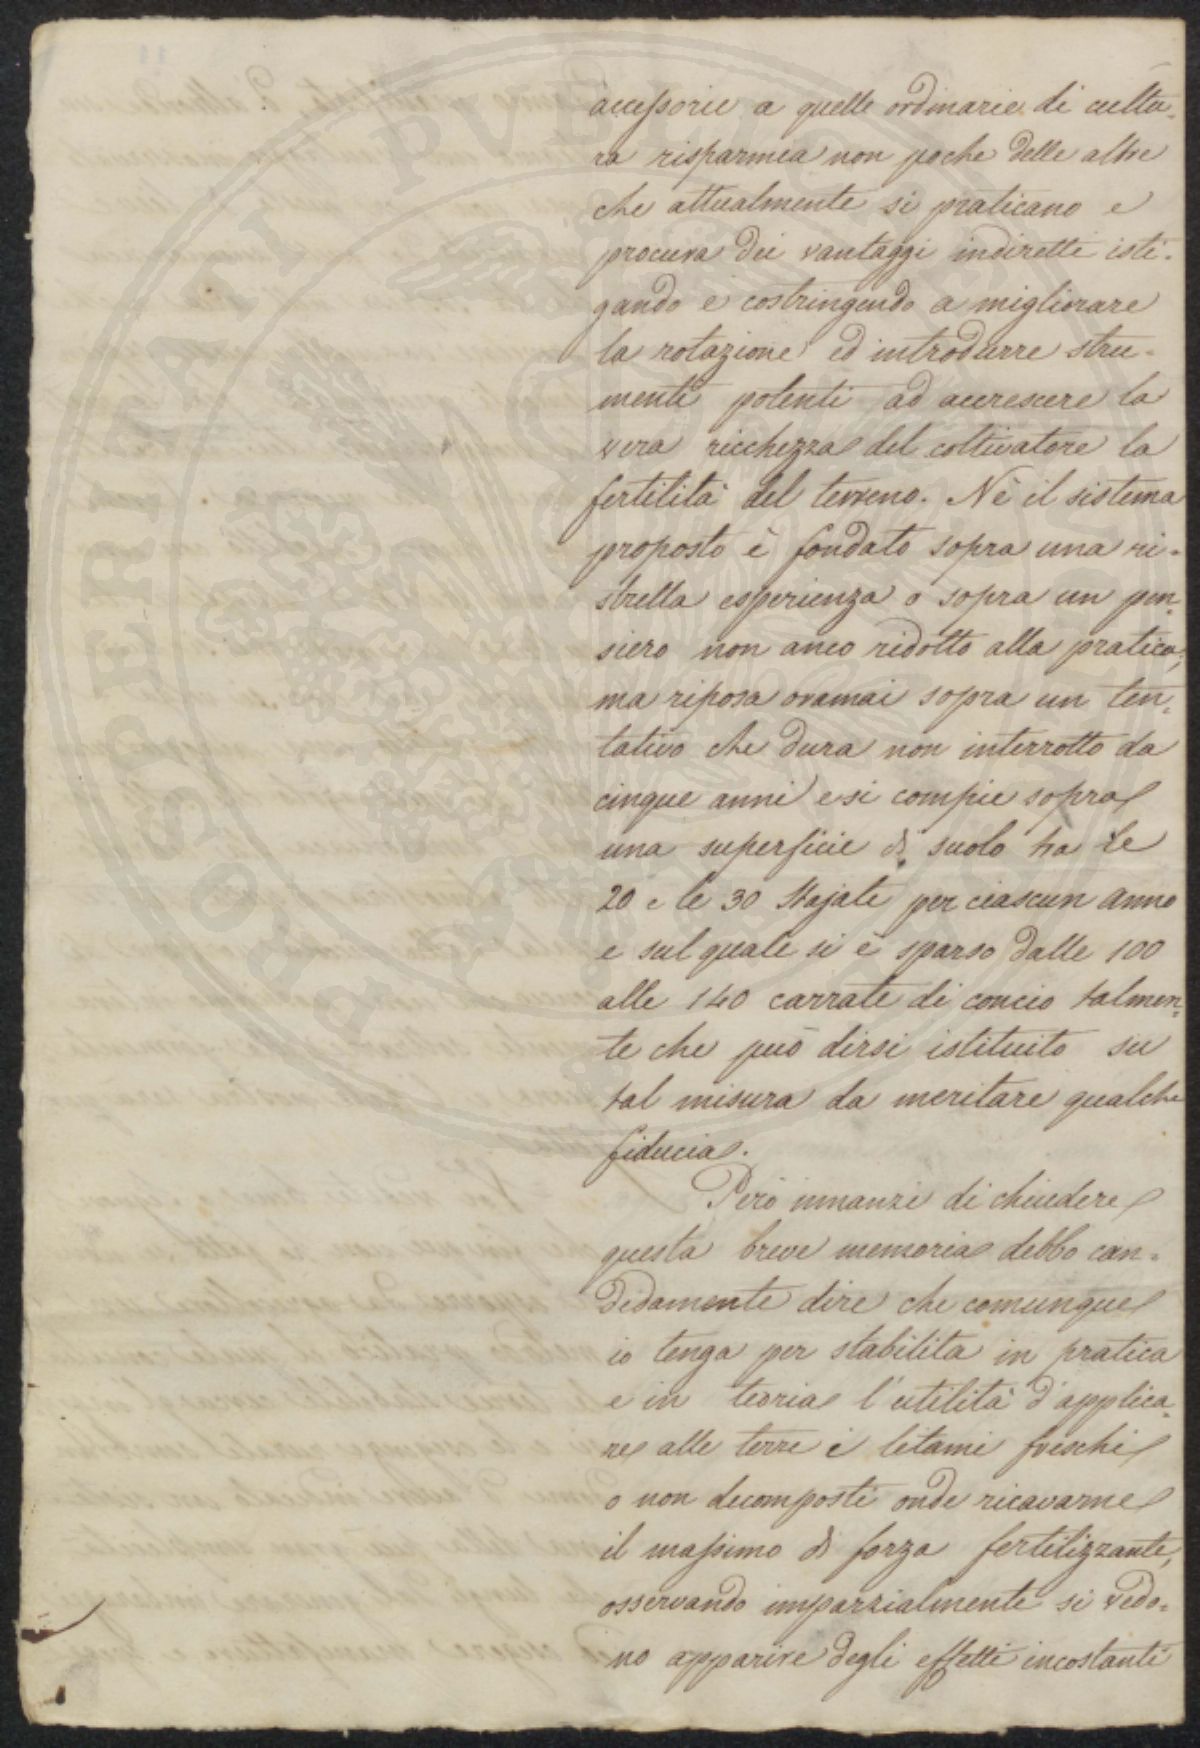 accessorie a quelle ordinarie di cultu-
ra risparmia non poche delle altre
che attualmente si praticano e
procura dei vantaggi indiretti isti-
gando e costringendo a migliorare
la rotazione ed introdurre stru-
menti potenti ad accrescere la
vera ricchezza del coltivatore la
fertilità del terreno. Nè il sistema
proposto è fondato sopra una ri-
stretta esperienza o sopra un pen-
siero non anco ridotto alla pratica,
ma riposa oramai sopra un ten-
tativo che dura non interrotto da
cinque anni e si compie sopra
una superficie di suolo tra le
20 e le 30 Stajate per ciascun anno
e sul quale si è sparso dalle 100
alle 140 carrate di concio talmen-
te che può dirsi istituito su
tal misura da meritare qualche
fiducia.
Però innanzi di chiudere
questa breve memoria debbo can-
didamente dire che comunque
io tenga per stabilita in pratica
e in teoria l'utilità d'applica-
re alle terre i letami freschi
o non decomposti onde ricavarne
il massimo di forza fertilizzante,
osservando imparzialmente si vedo-
no apparire degli effetti incostanti
PROSPERITATI PVBLICAE